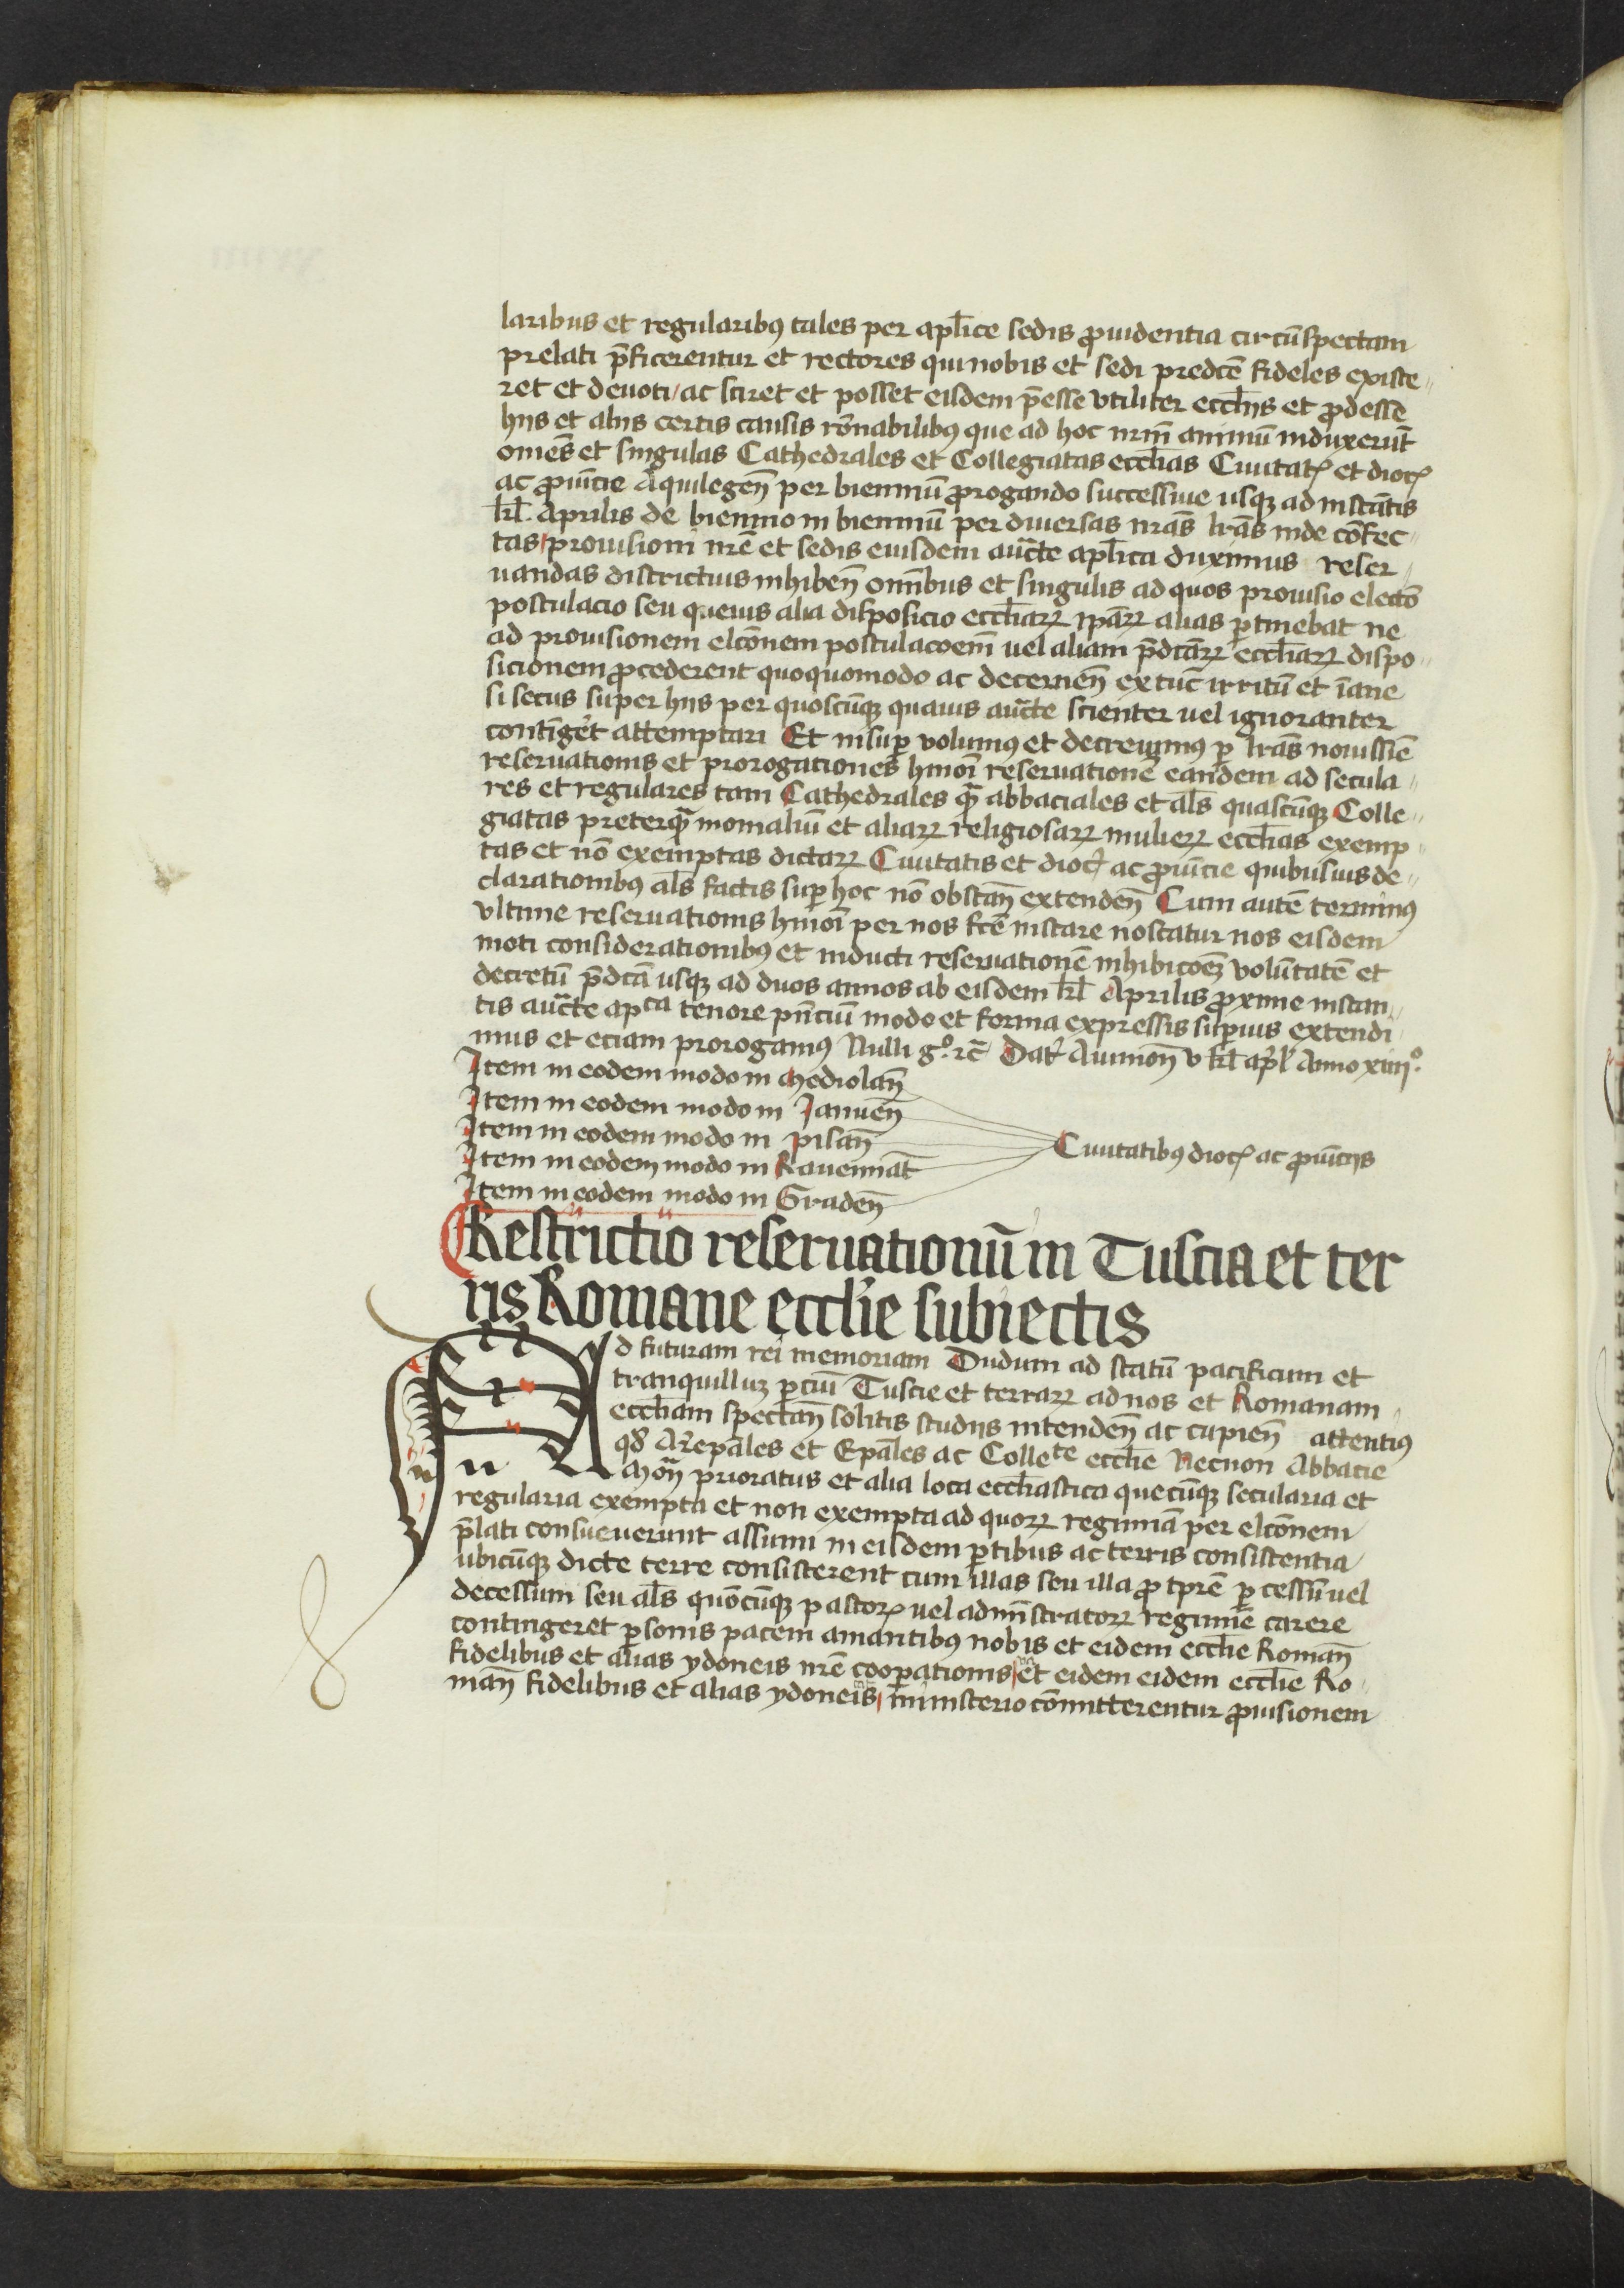 laribus et regularibꝰ tales per apl̄ice sedis ꝓuidentia circūspectam
prelati p̄ficerentur et rectores qui nobis et sedi predc̄e fideles existe
ret et deuoti / ac sciret et posset eisdem p̄esse vtiliter eccl̄iis et ꝓdesse
hijs et alijs certis causis rōnabilibꝰ que ad hoc nr̄m animū induxerūt
om̄es et singulas Cathedrales et Collegiatas eccl̄ias Ciuitat̄ et dioc̄
ac ꝓuīcie Aquilegen̄ per bienniū ꝓrogando successiue usqꝫ ad instātis
kl̄. Aprilis de biennio in bienniū per diuersas nr̄as lr̄as inde cōfec
tas prouisioni nr̄e et sedis eiusdem auct̄e apl̄ica duximus reser
uandas districtius inhiben̄ om̄ibus et singulis ad quos prouisio electō
postulacio seu queuis alia disposicio eccl̄iaꝝ ip̄aꝝ alias ꝑtinebat ne
ad prouisionem elcōnem postulacoem̄ uel aliam p̄dcāꝝ eccl̄iaꝝ dispo
sicionem ꝓcederent quoquomodo ac decernen̄ ex tūc irritū et īane
si secus super hijs per quoscūqꝫ quauis auct̄e scienter uel ignoranter
contīget̄ attemptari Et insuꝑ volumꝰ et decreuimꝰ ꝑ lr̄as nouissīe
reseruationis et prorogationes hmōi reseruationē eandem ad secula
res et regulares tam Cathedrales qͣ abbaciales et al̄s quascūqꝫ Colle
giatas preterqͣ monialiū et aliaꝝ religiosaꝝ mulieꝝ eccl̄ias exemp
tas et nō exemptas dictaꝝ Ciuitatis et dioc̄ ac ꝓuīcie quibusuis de
clarationibꝰ al̄s factis suꝑ hoc nō obstan̄ extenden̄ Cum autē terminꝰ
vltime reseruationis hmōi per nos fc̄e instare noscatur nos eisdem
moti considerationibꝰ et inducti reseruationē inhibicoēꝫ volūtatē et
decretū p̄dcā usqꝫ ad duos annos ab eisdem kl̄ Aprilis ꝓxime instan
tis auct̄e apᶜᵃ tenore pn̄ciū modo et forma expressis suꝑius extendi
mus et eciam prorogamꝰ Nulli gͦ. ⁊c̄ Dat̄ Auinion̄ v kl̄ apl̄ Anno xiiijͦ.
Item in eodem modo in Mediolan̄
Item in eodem modo in Januen̄
Item in eodem modo in Pisan̄
Item in eodem modo in Rauennat̄
Item in eodem modo in Graden̄
Ciuitatibꝰ dioc̄ ac ꝓuīcijs
Restrictio reseruationū in Tuscia et ter
ris Romane eccl̄ie subiectis
Ad futuram rei memoriam Dudum ad statū pacificum et
tranquilluꝫ ꝑciū Tuscie et terraꝝ ad nos et Romanam
eccl̄iam spectan̄ solitis studijs intenden̄ ac cupien̄ attentiꝰ
qd̄ Ar̄ep̄ales et Ep̄ales ac Colleᵗᵉ eccl̄ie Necnon Abbacie
Mon̄ prioratus et alia loca eccl̄iastica quecūqꝫ secularia et
regularia exempta et non exempta ad quoꝝ regimīa per elcōnem
p̄lati consueuerunt assumi in eisdem ꝑtibus ac terris consistentia
ubicūqꝫ dicte terre consisterent cum illas seu illa ꝓ tꝑre ꝑ cessū uel
decessum seu al̄s quōcūqꝫ pastoꝝ uel adm̄istratoꝝ regimīe carere
contingeret ꝑsonis pacem amantibꝰ nobis et eidem eccl̄ie Roman̄
fidelibus et alias ydoneis nr̄e cooꝑationis et eidem eidem eccl̄ie Ro
man̄ fidelibus et alias ydoneis ministerio cōmitterentur ꝓuisionem